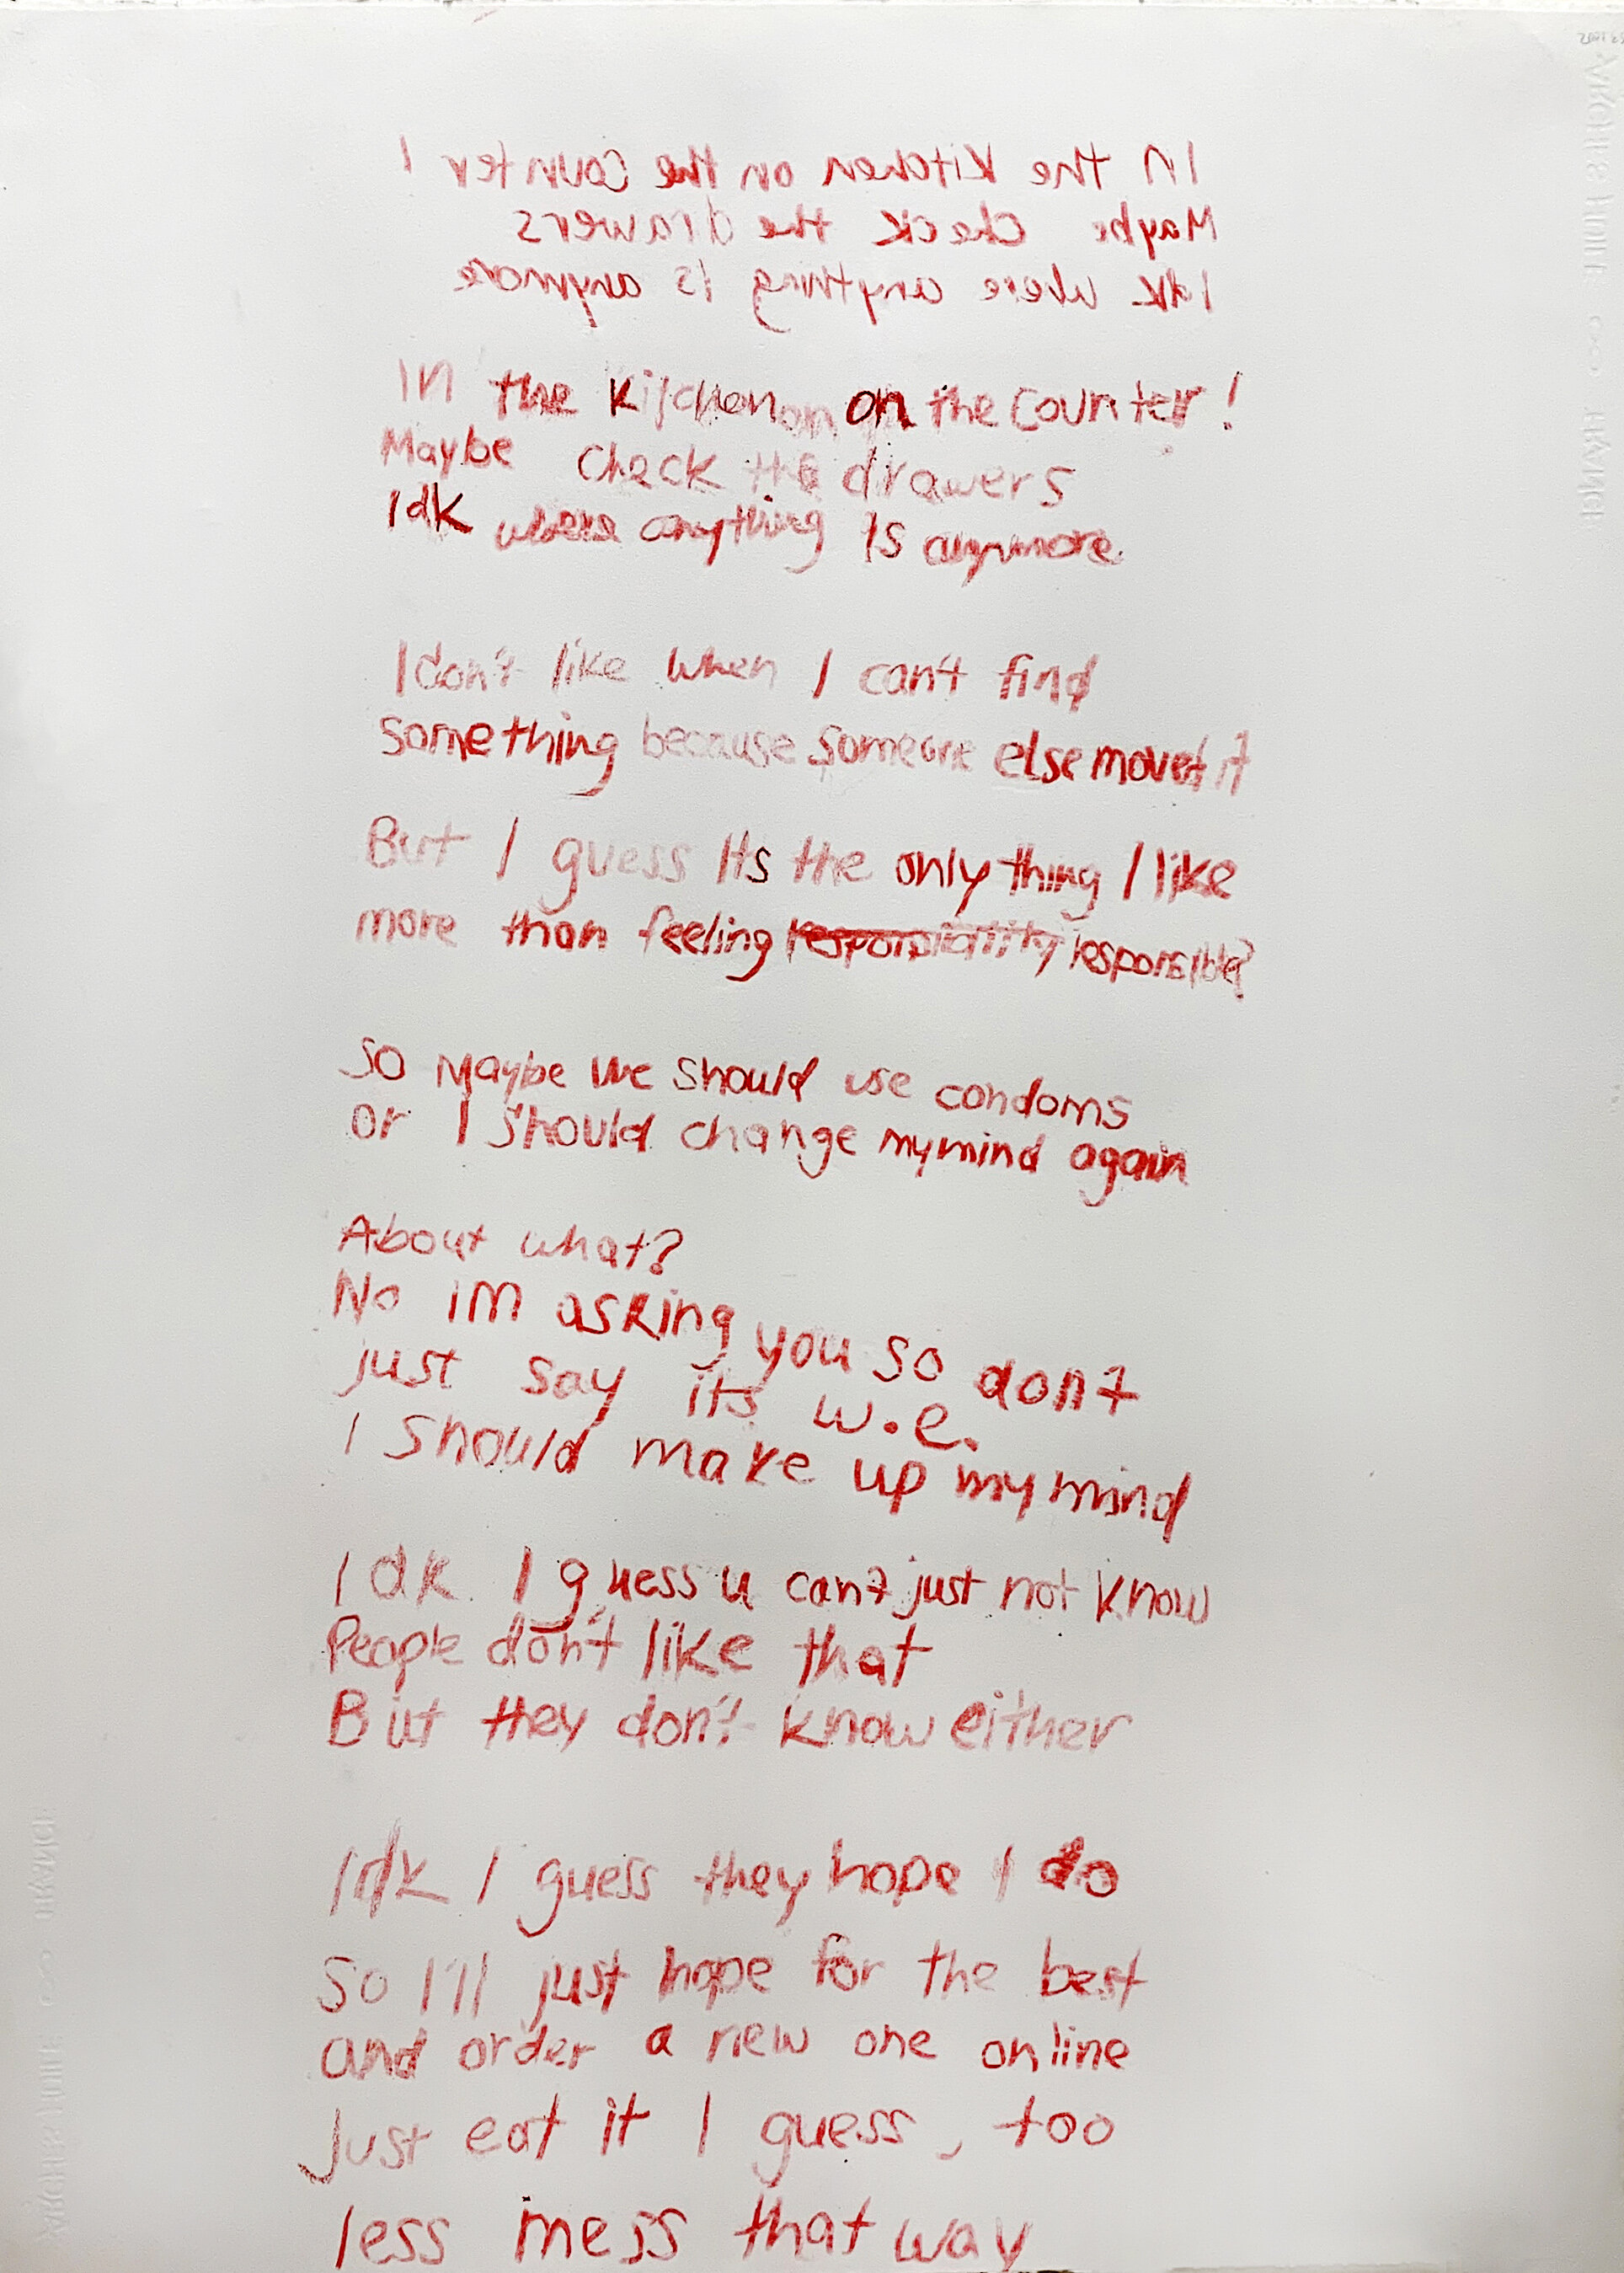 In the Kitchen on the Counter !
Maybe check the drawers
Idk where anything is anymore
In the Kitchen on on the Counter !
Maybe check the drawers
Idk where anything Is anymore
I don't like when I can't find
something because someone else moved it
But I guess Its the only thing I like
more than feeling responsible?
So Maybe we should use condoms
or I should change my mind again
About what?
No im asking you so don't
just say its w.e.
I should make up my mind
Idk. I guess u can't just not know
People don't like that
But they don't know either
Idk I guess they hope I do
So I'll just hope for the best
and order a new one online
Just eat it I guess, too
less mess that way
ARCHES
FRANCE
FRANCE
ARCHES